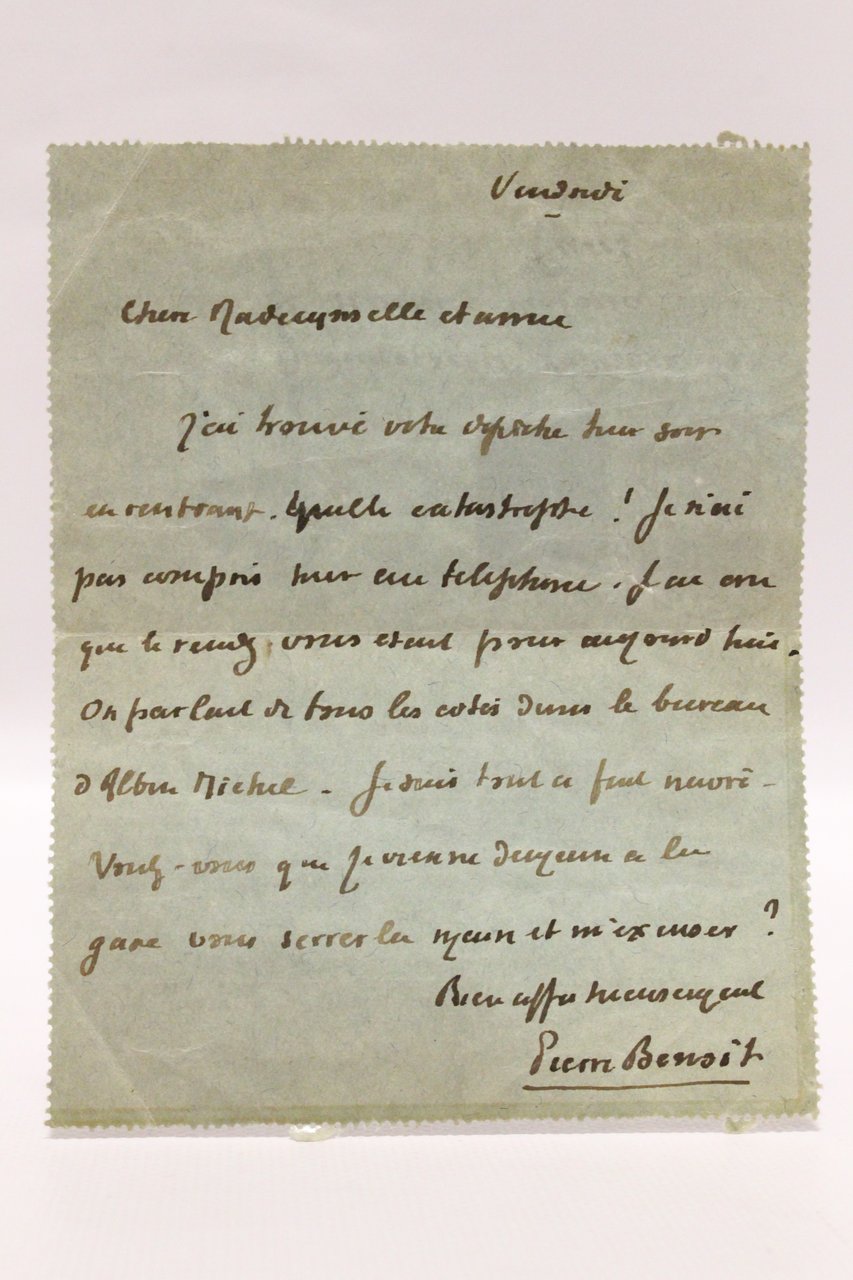 Vendredi
Chere Mademoiselle et amie
J'ai trouvé votre dépêche hier soir
en rentrant. Quelle catastrophe ! Je n'ai
pas compris hier au téléphone. J'ai cru
que le rendez vous etait pour aujourd hui.
On parlait de tous les cotés dans le bureau
d Albin Michel. Je suis tout a fait navré -
Voulez-vous que je vienne demain a la
gare vous serrer la main et m'excuser ?
Bien affectueusement
Pierre Benoit